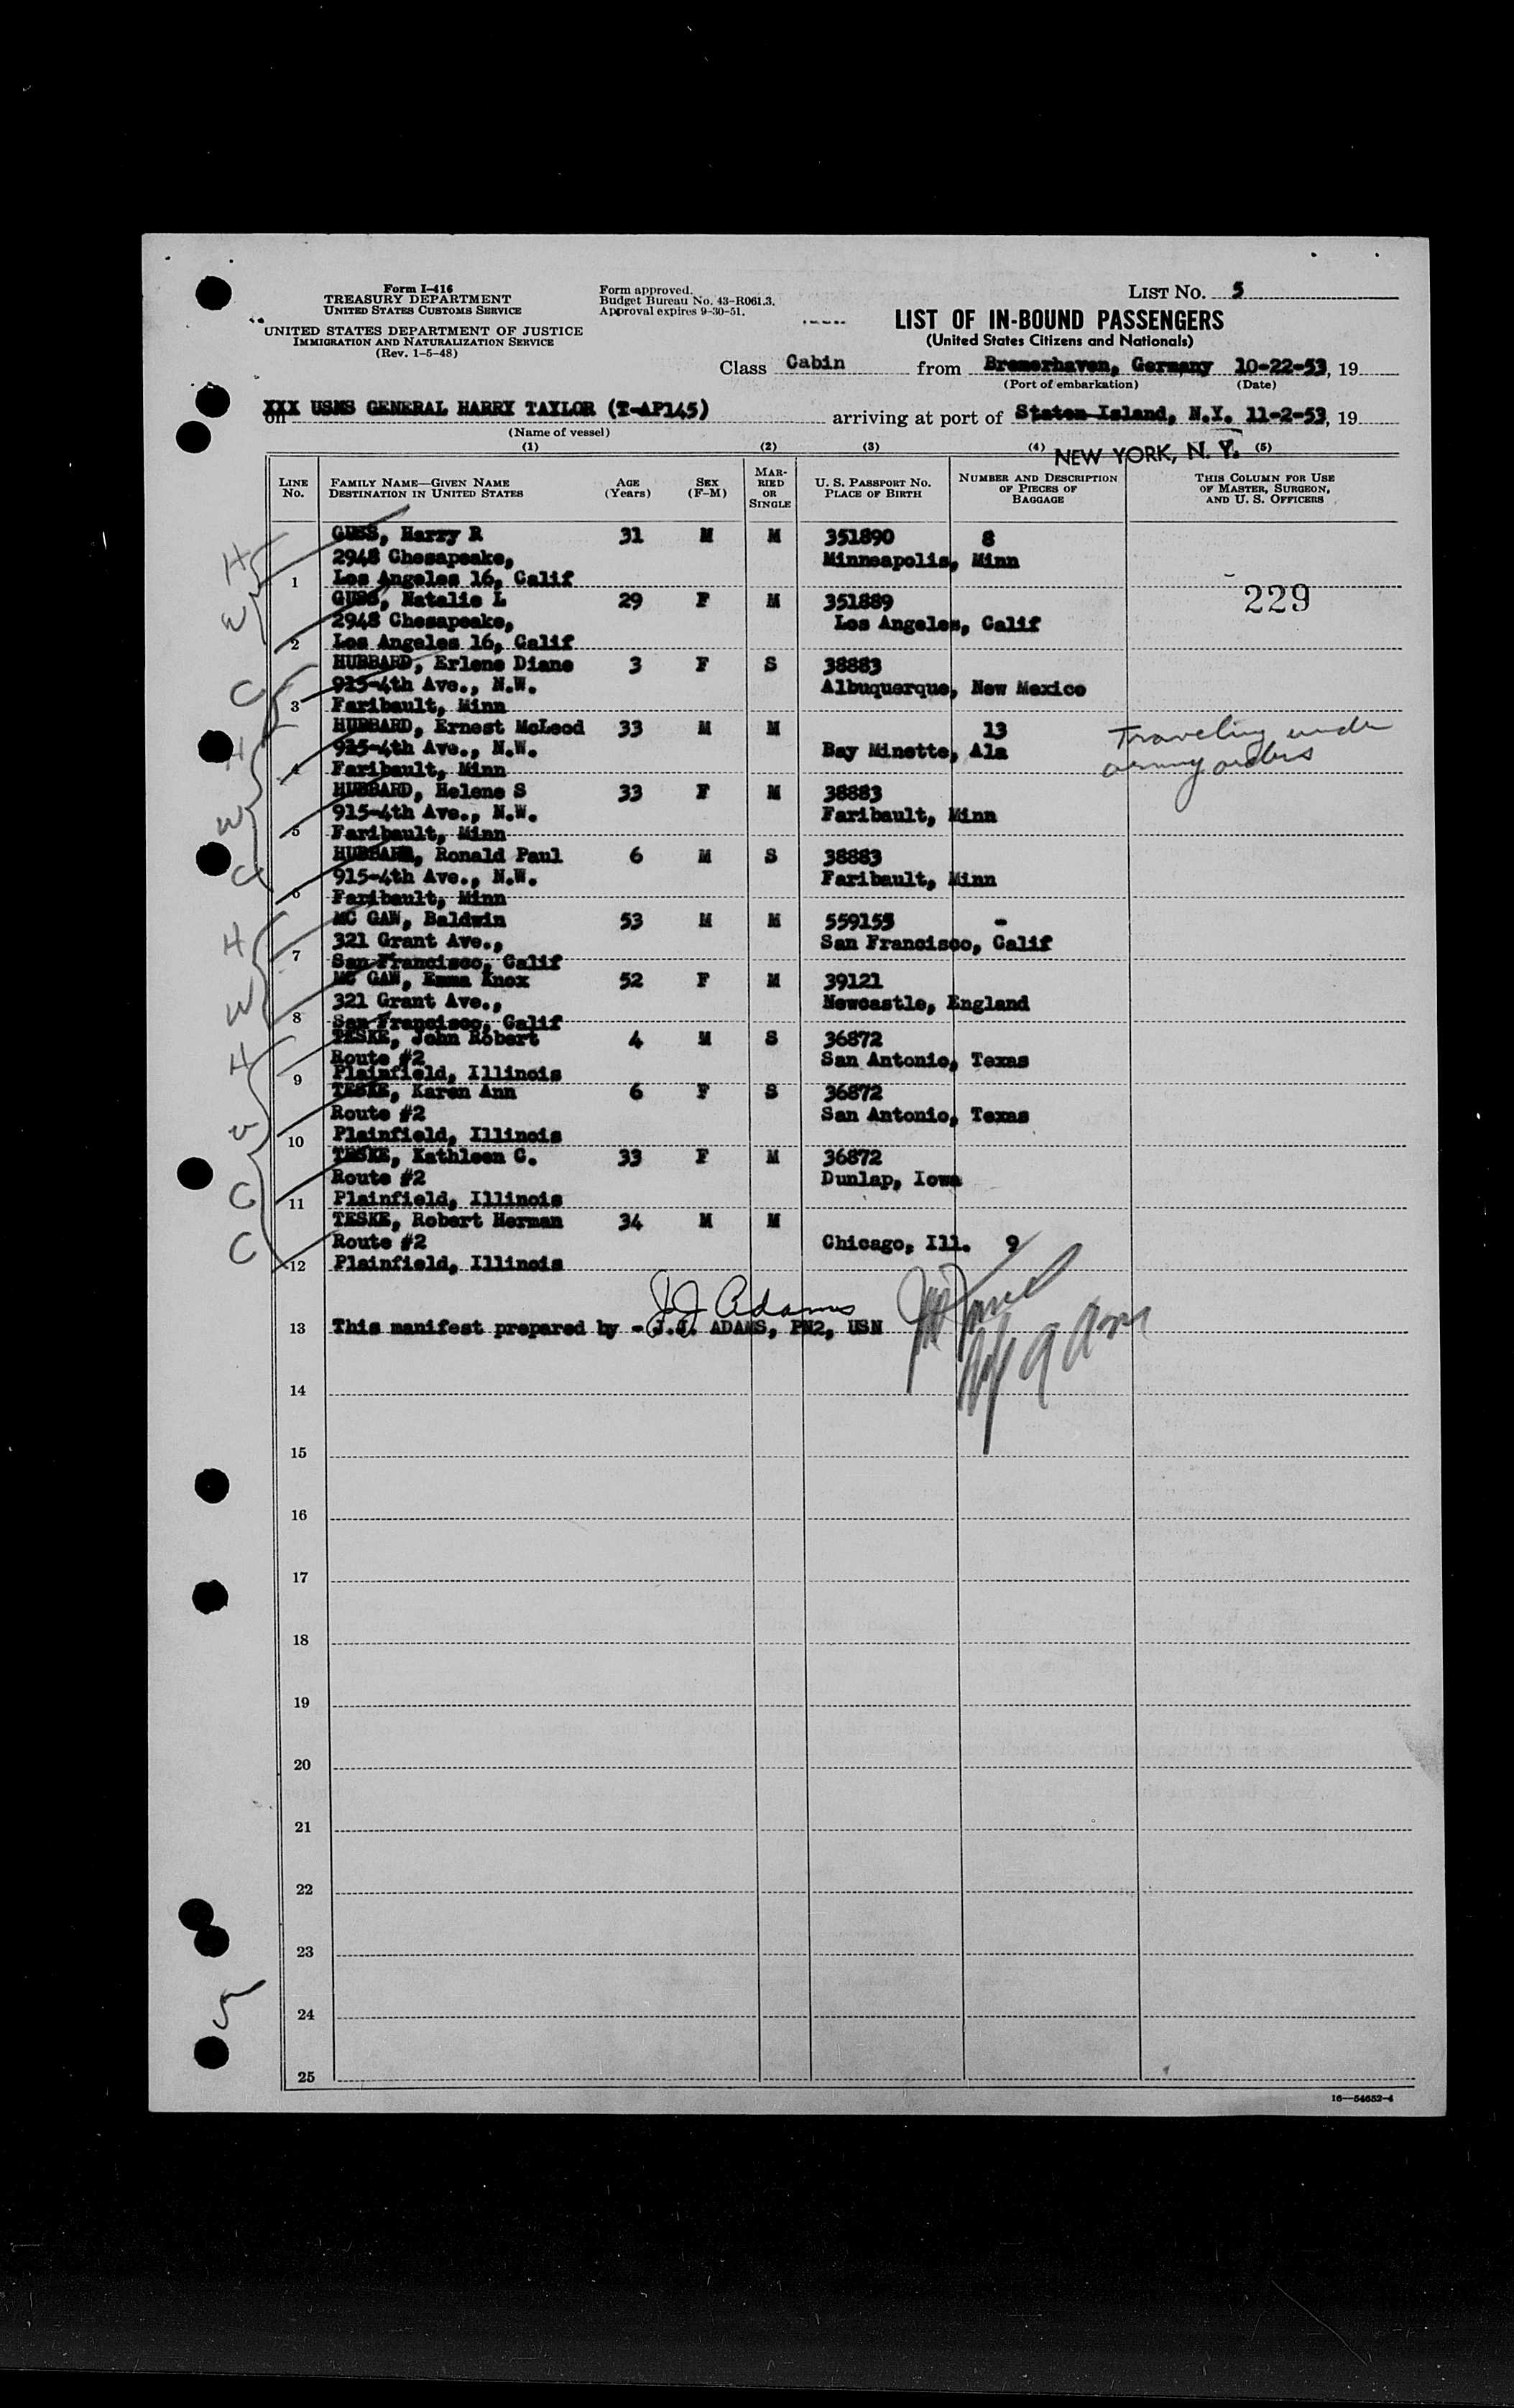 Form I-416
TREASURY DEPARTMENT
UNITED STATES CUSTOMS SERVICE
UNITED STATES DEPARTMENT OF JUSTICE
IMMIGRATION AND NATURALIZATION SERVICE
(Rev. 1-5-48)
Form approved.
Budget Bureau No. 43-R061.3.
Approval expires 9-30-51.
LIST NO. 5
LIST OF IN-BOUND PASSENGERS
(United States Citizens and Nationals)
Class Cabin from Bremerhaven, Germany 10-22-53, 19
(Port of embarkation) (Date)
on XXX USNS GENERAL HARRY TAYLOR (T-AP145) arriving at port of Staten Island, N.Y. 11-2-53, 19
(Name of vessel)
NEW YORK, N. Y.
(1) (2) (3) (4) (5)
LINE NO. FAMILY NAME—GIVEN NAME DESTINATION IN UNITED STATES AGE (Years) SEX (F-M) MARRIED OR SINGLE U. S. PASSPORT NO. PLACE OF BIRTH NUMBER AND DESCRIPTION OF PIECES OF BAGGAGE THIS COLUMN FOR USE OF MASTER, SURGEON, AND U. S. OFFICERS
GUSS, Harry R 31 M M 351890 8
2948 Chesapeake, Minneapolis, Minn
1 Los Angeles 16, Calif
GUSS, Natalie L 29 F M 351889 229
2948 Chesapeake, Los Angeles, Calif
2 Los Angeles 16, Calif
HUBBARD, Erlene Diane 3 F S 38883
915-4th Ave., N.W. Albuquerque, New Mexico
3 Faribault, Minn
HUBBARD, Ernest McLeod 33 M M 13 Traveling under
915-4th Ave., N.W. Bay Minette, Ala army orders
4 Faribault, Minn
HUBBARD, Helene S 33 F M 38883
915-4th Ave., N.W. Faribault, Minn
5 Faribault, Minn
HUBBARD, Ronald Paul 6 M S 38883
915-4th Ave., N.W. Faribault, Minn
6 Faribault, Minn
MC GAW, Baldwin 53 M M 559155 -
321 Grant Ave., San Francisco, Calif
7 San Francisco, Calif
MC GAW, Emma Knox 52 F M 39121
321 Grant Ave., Newcastle, England
8 San Francisco, Calif
TESKE, John Robert 4 M S 36872
Route #2 San Antonio, Texas
9 Plainfield, Illinois
TESKE, Karen Ann 6 F S 36872
Route #2 San Antonio, Texas
10 Plainfield, Illinois
TESKE, Kathleen C. 33 F M 36872
Route #2 Dunlap, Iowa
11 Plainfield, Illinois
TESKE, Robert Herman 34 M M
Route #2 Chicago, Ill. 9
12 Plainfield, Illinois
J J Adams
13 This manifest prepared by - J.J. ADAMS, PN2, USN
14
15
16
17
18
19
20
21
22
23
24
25
16—54652-4